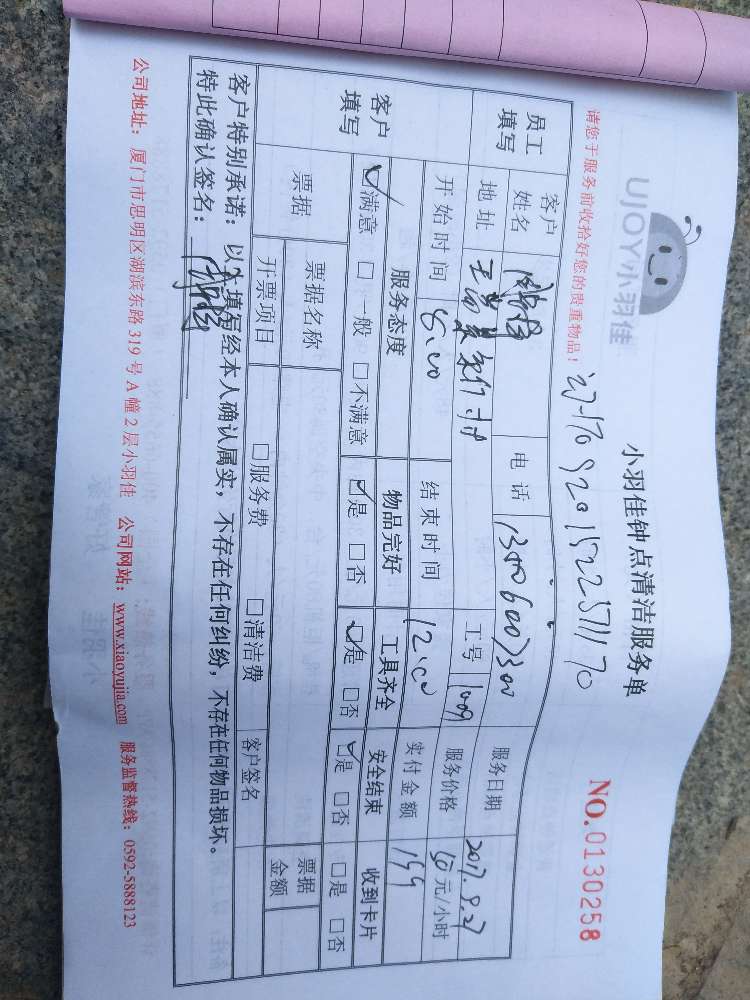 UJOY小羽佳
小羽佳钟点清洁服务单
NO.0130258
请您于服务前收拾好您的贵重物品!
员工填写
客户姓名
电话
服务日期 2017.9.27
地址
工号 1009
服务价格 50元/小时
开始时间 8:00
结束时间 12:00
实付金额 199
客户填写
服务态度 物品完好 工具齐全 安全结束 收到卡片
☑满意 □一般 □不满意 ☑是 □否 ☑是 □否 ☑是 □否 □是 □否
票据
票据名称
票据金额
开票项目 □服务费 □清洁费 客户签名
客户特别承诺:以上填写经本人确认属实,不存在任何纠纷,不存在任何物品损坏。
特此确认签名:
公司地址:厦门市思明区湖滨东路319号A幢2层小羽佳 公司网站:www.xiaoyujia.com 服务监督热线:0592-5888123